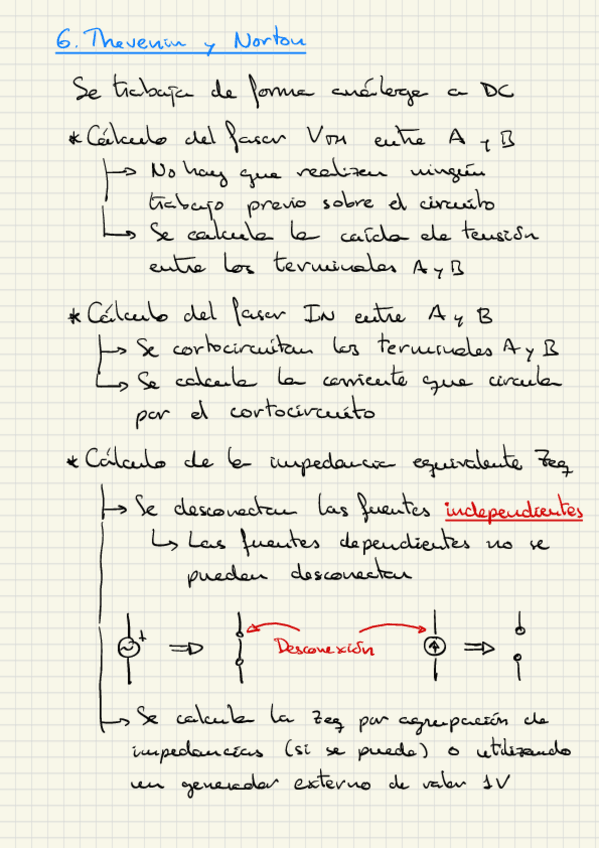 6. Thevenin y Norton
Se trabaja de forma análoga a DC
* Cálculo del fasor VTH entre A y B
↳ No hay que realizar ningún
trabajo previo sobre el circuito
↳ Se calcula la caída de tensión
entre los terminales A y B
* Cálculo del fasor IN entre A y B
↳ Se cortocircuitan los terminales A y B
↳ Se calcula la corriente que circula
por el cortocircuito
* Cálculo de la impedancia equivalente Zeq
↳ Se desconectan las fuentes independientes
↳ Las fuentes dependientes no se
pueden desconectar
+ ⇒ Desconexión ⇒
↳ Se calcula la Zeq por agrupación de
impedancias (si se puede) o utilizando
un generador externo de valor 1V